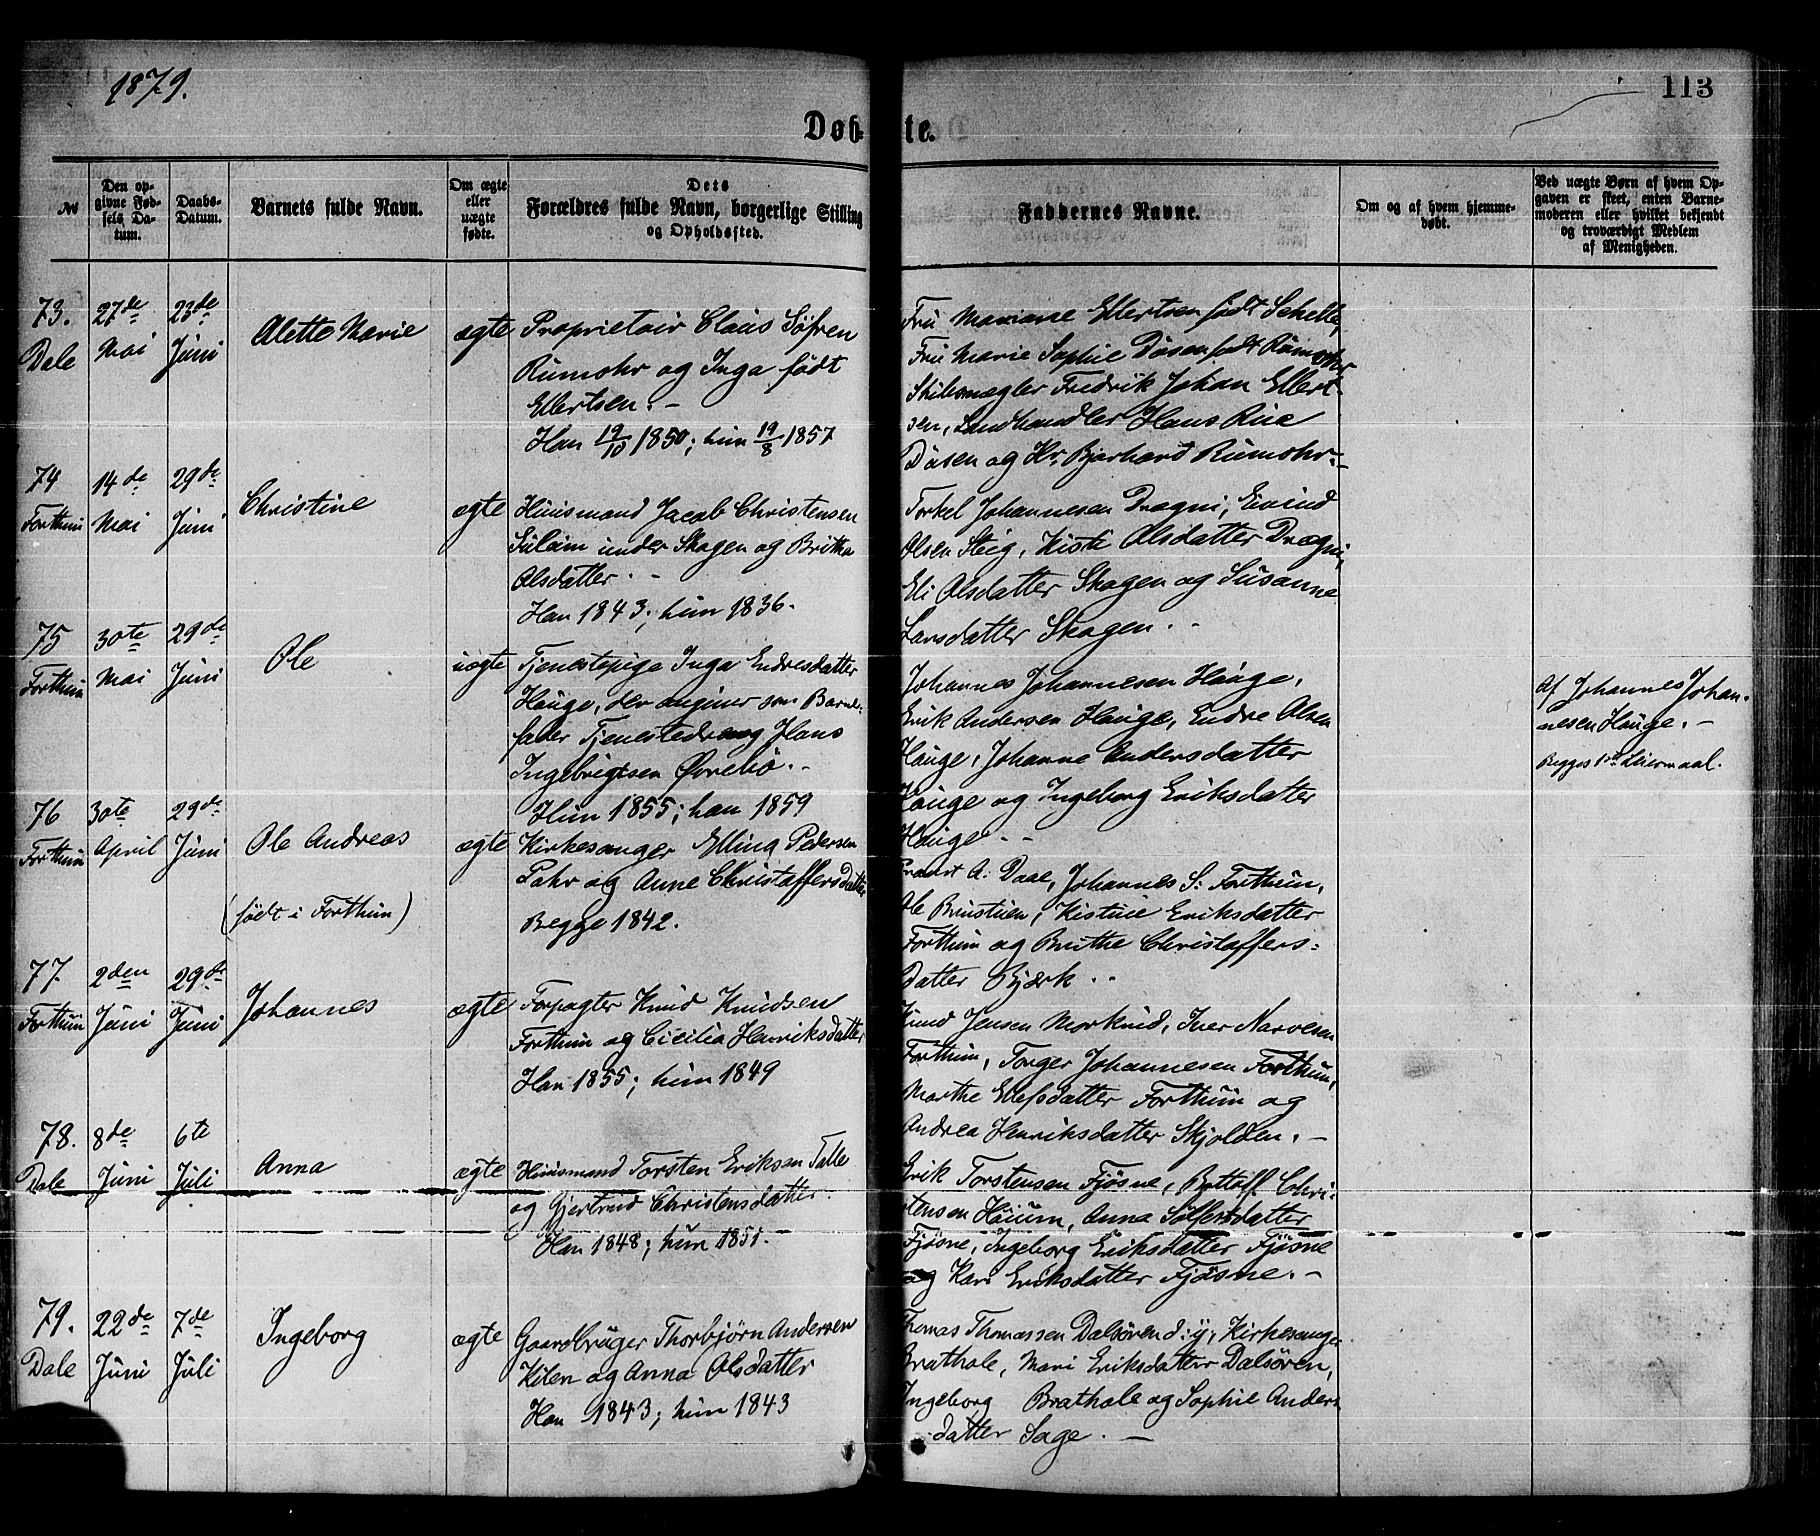 1879.
113
Døbte.
№
Den opgivne Fødsels Datum.
Daabs-Datum.
Barnets fulde Navn.
Om ægte eller uægte fødte.
Dets Forældres fulde Navn, borgerlige Stilling og Opholdssted.
Faddernes Navne.
Om og af hvem hjemmedøbt.
Ved uægte Børn af hvem Opgaven er skeet, enten Barnemoderen eller hvilket bekjendt og troværdigt Medlem af Menigheden.
73.
Dale
27de
Mai
23de
Juni
Alette Marie
ægte
Proprietair Claus Søfren
Rumohr og Inga født
Ellertsen. -
Han 19/10 1850; hun 19/8 1857
Fru Mariane Ellertsen født Schelle,
Fru Marie Sophie Døsen født Rumohr
Skibsmægler Fredrik Johan Ellert-
sen, Landhandler Hans Riie
Døsen og Hr. Bjarhard Rumohr. -
74
Forthun
14de
Mai
29de
Juni
Christine
ægte
Huusmand Jacob Christensen
Suleim under Skagen og Britha
Olsdatter. -
Han 1843; hun 1836.
Torkel Johannesen Drægni, Eivind
Olsen Steig, Kisti Olsdatter Drægni,
Eli Olsdatter Skagen og Susanne
Larsdatter Skagen. -
75
Forthun
30te
Mai
29de
Juni
Ole
uægte
Tjenestepige Inga Endresdatter
Hauge, der angiver som Barne-
fader Tjenestedreng Hans
Ingebrigtsen Øvrebø. -
Hun 1855; han 1859
Johannes Johannesen Hauge,
Erik Andersen Hauge, Endre Olsen
Hauge, Johanne Endersdatter
Hauge og Ingeborg Eriksdatter
Hauge. -
Af Johannes Johan-
nesen Hauge. -
Begges 1ste Leiermaal.
76
Forthun
30te
April
29de
Juni
Ole Andreas
(født i Forthun)
ægte
Kirkesanger Elling Pedersen
Pahr og Anne Christaffersdatter
Begge 1842.
Provst A. Daae, Johannes S. Forthun,
Ole Brustuen, Kistine Eriksdatter
Forthun og Brithe Christaffers-
datter Bjørk. -
77.
Forthun
2den
Juni
29de
Juni
Johannes
ægte
Forpagter Knud Knudsen
Forthun og Cicilia Henriksdatter
Han 1855; hun 1849
Knud Jensen Morkrid, Iver Narvesen
Forthun, Torger Johannesen Forthun,
Marthe Elefsdatter Forthun og
Andrea Henriksdatter Skjolden. -
78.
Dale
8de
Juni
6te
Juli
Anna
ægte
Huusmand Torsten Eriksen Talle
og Gjertrud Christensdatter.
Han 1848; hun 1851. -
Erik Torstensen Fjøsne, Bottolf Chri-
stensen Høium, Anna Sølfestsdatter
Fjøsne, Ingeborg Eriksdatter Fjøsne
og Kari Eriksdatter Fjøsne. -
79.
Dale
22de
Juni
7de
Juli
Ingeborg
ægte
Gaardbruger Thorbjørn Andersen
Kilen og Anna Olsdatter
Han 1843; hun 1843
Thomas Thomassen Dalsøren d: y:, Kirkesanger
Brathole, Mari Eriksdatter Dalsøren,
Ingeborg Brathole og Sophie Anders-
datter Sage. -